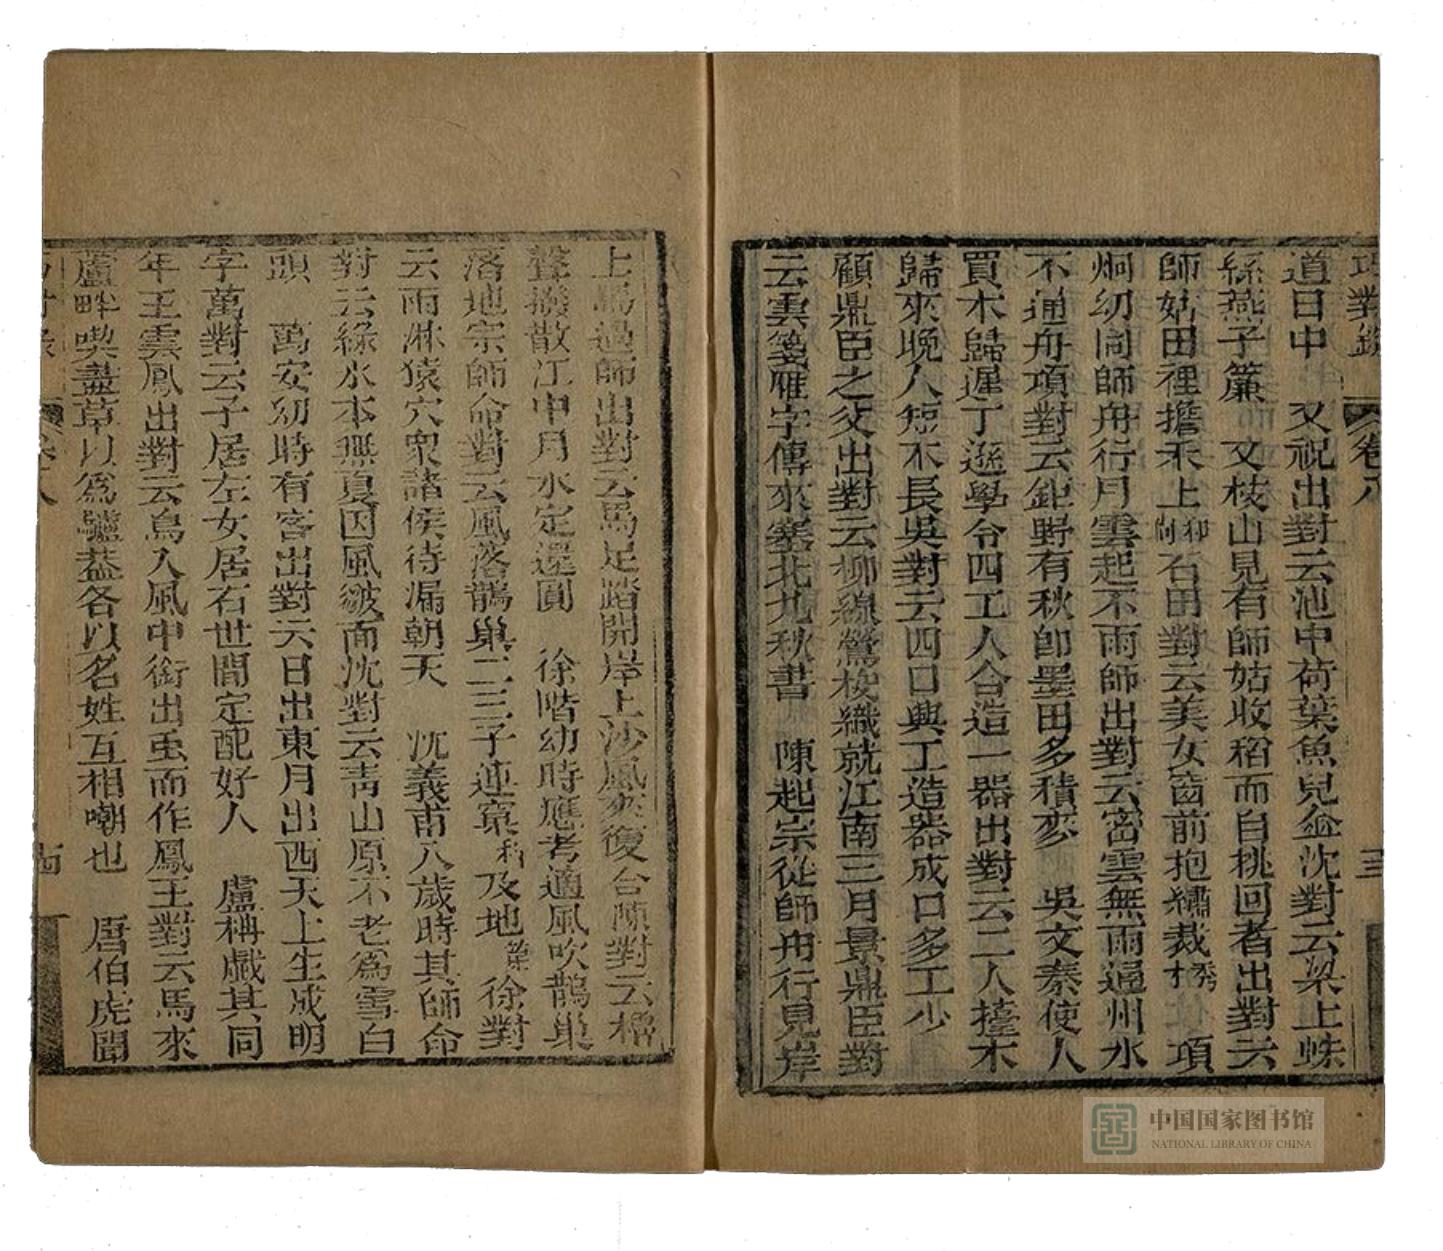 巧對錄 卷八 三
道日中 又祝出對云池中荷葉魚兒傘沈對云梁上蛛
絲燕子簾 文枝山見有師姑收稻而自挑回者出對云
師姑田裡擔禾上和尚石田對云美女窗前抱繡裁秀才 項
炯幼同師舟行月雲起不雨師出對云密雲無雨通州水
不通舟項對云鉅野有秋即墨田多積麥 吳文泰使人
買木歸遲丁遜學令四工人合造一器出對云二人擡木
歸來晚人短木長吳對云四口興工造器成口多工少
顧鼎臣之父出對云柳線鶯梭織就江南三月景鼎臣對
云雲箋雁字傳來塞北九秋書 陳起宗從師舟行見岸
上馬過師出對云馬足踏開岸上沙風來復合陳對云櫓
聲撥散江中月水定還圓 徐階幼時應考適風吹鵲巢
落地宗師命對云風落鵲巢二三子連窠及地 徐對
云雨淋猿穴衆諸侯待漏朝天 沈義甫八歲時其師命
對云綠水本無憂因風皺面沈對云青山原不老為雪白
頭 萬安幼時有客出對云日出東月出西天上生成明
字萬對云子居左女居右世間定配好人 盧柟戲其同
年王雲鳳出對云鳥入風中銜出䖝而作鳳王對云馬來
蘆畔喫盡草以為驢葢各以名姓互相嘲也 唐伯虎聞
巧對錄 卷八
中国国家图书馆
NATIONAL LIBRARY OF CHINA